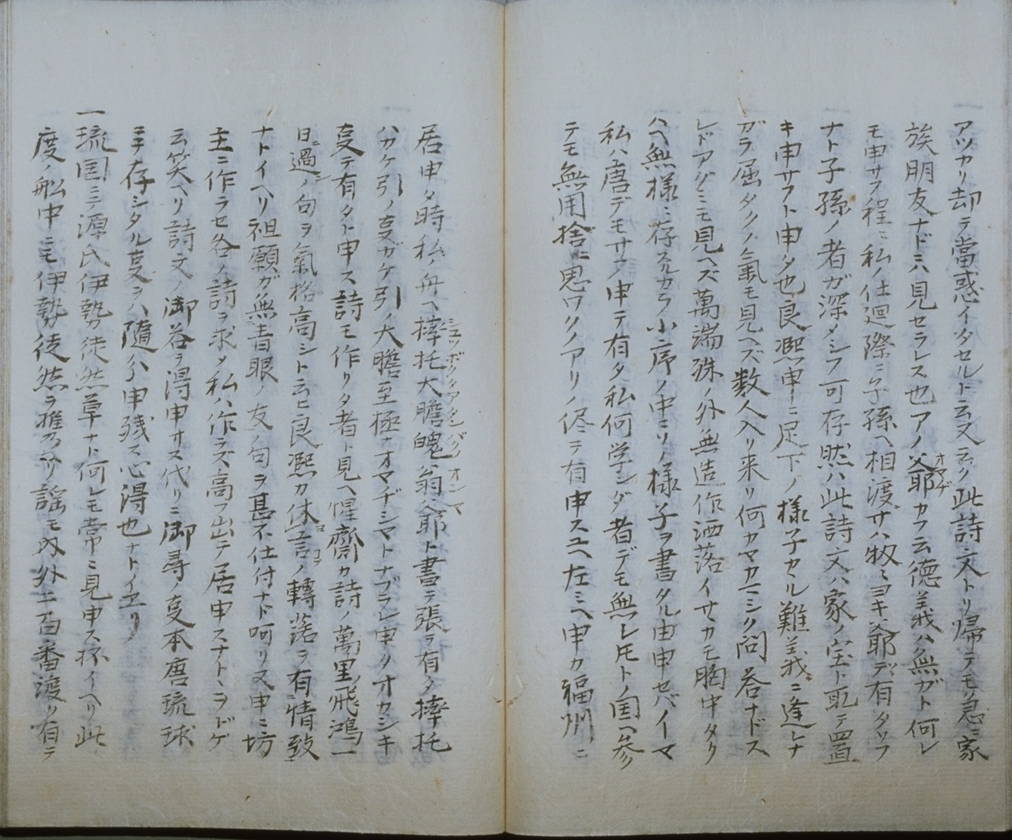 アツカリ却テ當惑イタセルト云又云ク此詩文トリ帰テモ急ニ家
族朋友ナドニハ見セラレス也アノ爺カフ云徳義ハク無ガト何レ
モ申サフ程ニ私ノ仕廻際ニ子孫ヘ相渡サハ牧々ヨキ爺デ有タソフ
ナト子孫ノ者ガ深メシフ可存然ハ此詩文ハ家ノ宝ト取テ置
キ申サフト申タ也良凞申ニ足下ノ様子カヽル難義ニ逢レナ
ガラ屈タクノ氣モ見ヘズ数人入リ来リ何カヤカマシク問答ナドス
レドアグミモ見ヘズ萬端殊ノ外無造作洒落イサカモ胸中タリ
ハヘ無様ニ存スルカラ小序ノ中ニソノ様子ヲ書タル由申セバイマ
私ハ唐デモサフ申テ有タ私何学ンダ者デモ無レ𪜈トノ国ヘ参
テモ無用捨ニ思ワクノアリノ侭テ有申スユヘ左ミヘ申カ福州ニ
居申タ時私ノ舟ヘ摔托大膽魄翁爺ト書テ張ヲ有タ摔托
ハカケ引ノ支ガケ引ノ大膽至極ナオマヂシマトナブラレ申タオカシキ
支テ有タト申ス詩モ作リタ者ト見ヘ惺齋カ詩ノ萬里飛鴻一
日過ノ句ヲ氣格高シト云ヒ良凞カ休言ノ轉蓬ヲ有情致
ナトイヘリ祖願ガ無青眼ノ友ノ句ヲ甚不仕付ナド呵リ又申ニ坊
主ニ作ラセ各ノ詩ヲ求メ私ハ作ラズ高フ出テ居申スナトヽヲドゲ
云笑ヘリ詩文ノ御答ヲ得申サス代リニ御尋ノ支本唐琉球
ニテ存シタル支ヲハ隨分申残ス心得也ナトイヱリ
一琉国ニテ源氏伊勢徒然草ナト何レモ常ニ見申ス抔イヘリ此
度ノ舩中ニモ伊勢徒然ヲ携ヱタリ謡モ内外二百番渡リ有テ